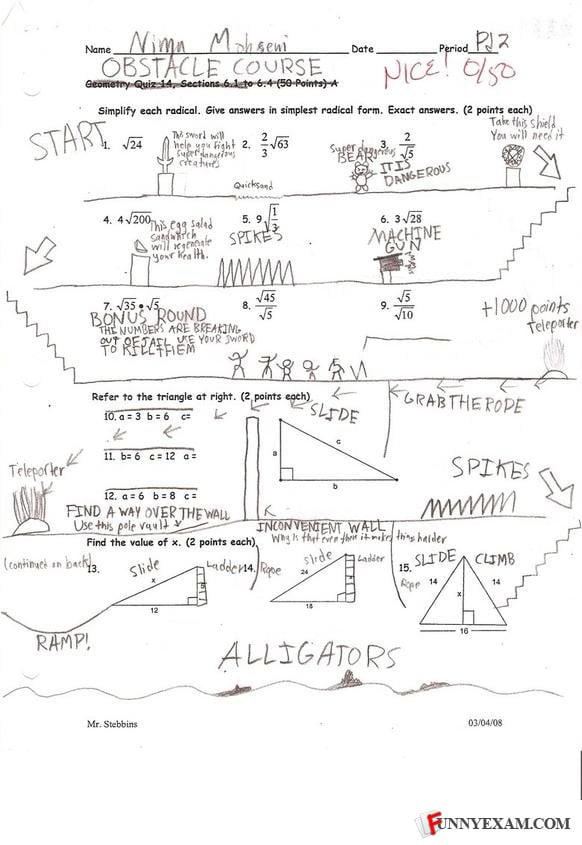 Name Nima Mohseni Date Period Pd 2
OBSTACLE COURSE
NICE! 0/50
Geometry Quiz 14, Sections 6.1 to 6.4 (50 Points) A
Simplify each radical. Give answers in simplest radical form. Exact answers. (2 points each)
START
1. √24
This sword will
help you fight
super dangerous
creatures
2. 2/3 √63
Super dangerous
BEAR
3. 2/√5
IT IS
DANGEROUS
Take this shield
You will need it
Quicksand
4. 4√200
This egg salad
sandwich
will regenerate
your health.
5. 9√1/3
SPIKES
6. 3√28
MACHINE
GUN
7. √35 • √5
BONUS ROUND
THE NUMBERS ARE BREAKING
OUT OF JAIL USE YOUR SWORD
TO KILL THEM
8. √45/√5
9. √5/√10
+1000 points
Teleporter
Refer to the triangle at right. (2 points each)
SLIDE
GRAB THE ROPE
10. a = 3 b = 6 c=
11. b= 6 c = 12 a=
12. a = 6 b = 8 c=
a
c
b
Teleporter
SPIKES
FIND A WAY OVER THE WALL
Use this pole vault
INCONVENIENT WALL
Why is that even there it makes things harder
Find the value of x. (2 points each)
(continued on back)
13.
Slide
x
12
Ladder
14.
Rope
Slide
24
18
Ladder
15.
SLIDE
CLIMB
Rope
14
14
x
16
RAMP!
ALLIGATORS
Mr. Stebbins 03/04/08
FUNNYEXAM.COM